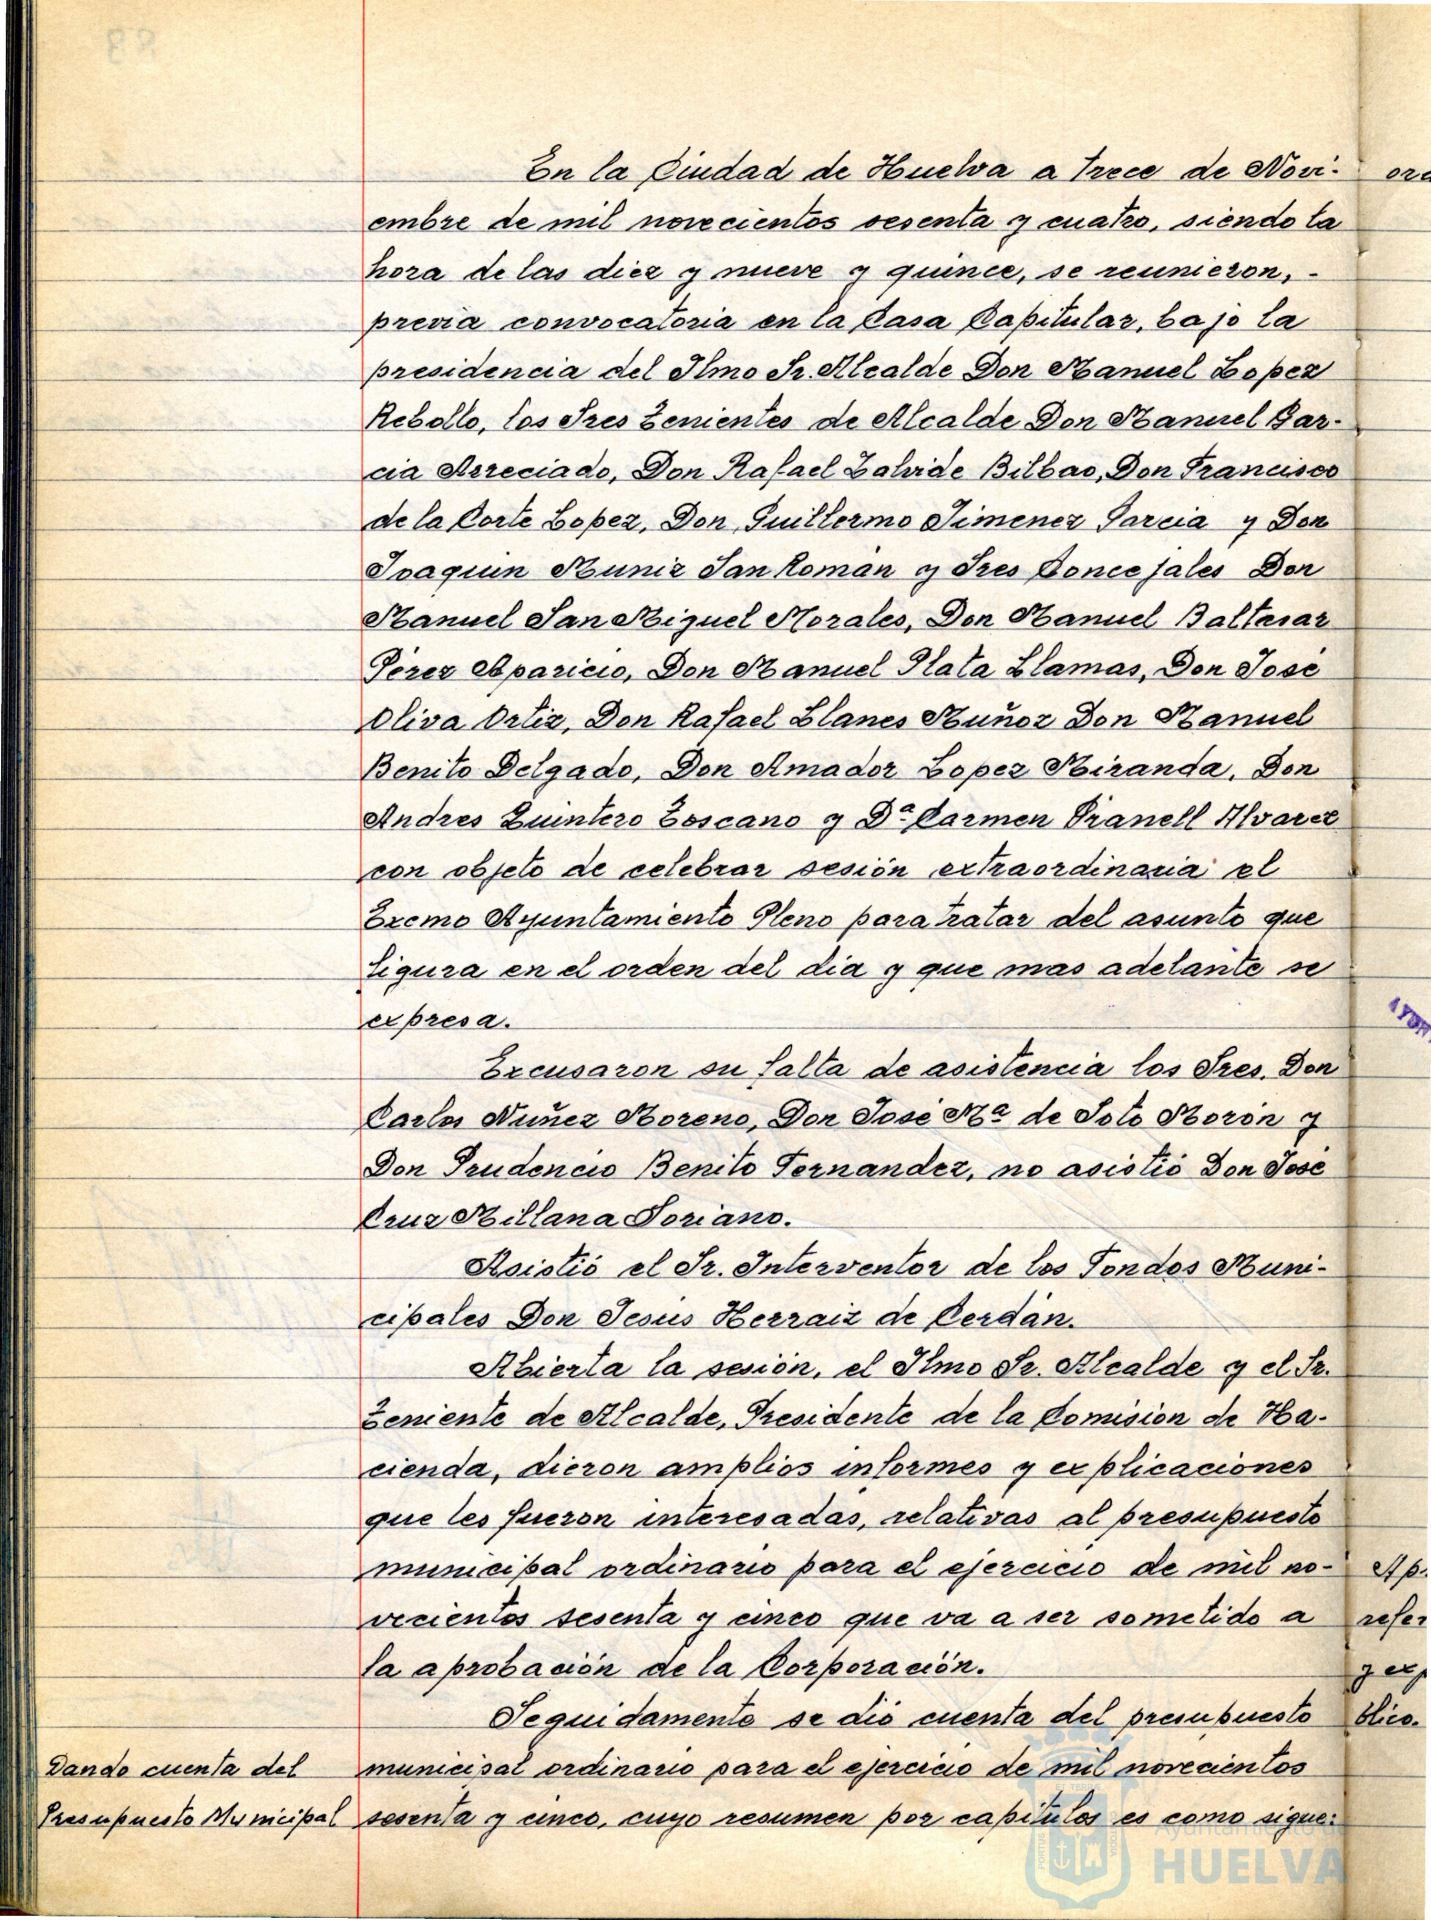 En la Ciudad de Huelva a trece de Novi-
embre de mil novecientos sesenta y cuatro, siendo la
hora de las diez y nueve y quince, se reunieron, -
previa convocatoria en la Casa Capitular, bajo la
presidencia del Ilmo Sr. Alcalde Don Manuel Lopez
Rebollo, los Sres Tenientes de Alcalde Don Manuel Gar-
cia Arreciado, Don Rafael Zalvide Bilbao, Don Francisco
de la Corte Lopez, Don Guillermo Jimenez Garcia y Don
Joaquin Muniz San Román y Sres Concejales Don
Manuel San Miguel Morales, Don Manuel Baltasar
Pérez Aparicio, Don Manuel Plata Llamas, Don José
Oliva Ortiz, Don Rafael Llanes Muñoz Don Manuel
Benito Delgado, Don Amador Lopez Miranda, Don
Andres Quintero Toscano y Dª Carmen Pranell Alvarez
con objeto de celebrar sesión extraordinaria el
Excmo Ayuntamiento Pleno para tratar del asunto que
figura en el orden del dia y que mas adelante se
expresa.
Excusaron su falta de asistencia los Sres. Don
Carlos Nuñez Moreno, Don José Mª de Soto Morón y
Don Prudencio Benito Fernandez, no asistió Don José
Cruz Millana Soriano.
Asistió el Sr. Interventor de los Fondos Muni-
cipales Don Jesús Herraiz de Cerdán.
Abierta la sesión, el Ilmo Sr. Alcalde y el Sr.
Teniente de Alcalde, Presidente de la Comisión de Ha-
cienda, dieron amplios informes y explicaciones
que les fueron interesadas, relativas al presupuesto
municipal ordinario para el ejercicio de mil no-
vecientos sesenta y cinco que va a ser sometido a
la aprobación de la Corporación.
Seguidamente se dió cuenta del presupuesto
Dando cuenta del
Presupuesto Municipal
municipal ordinario para el ejercicio de mil novecientos
sesenta y cinco, cuyo resumen por capitulos es como sigue:
Ayuntamiento de
HUELVA